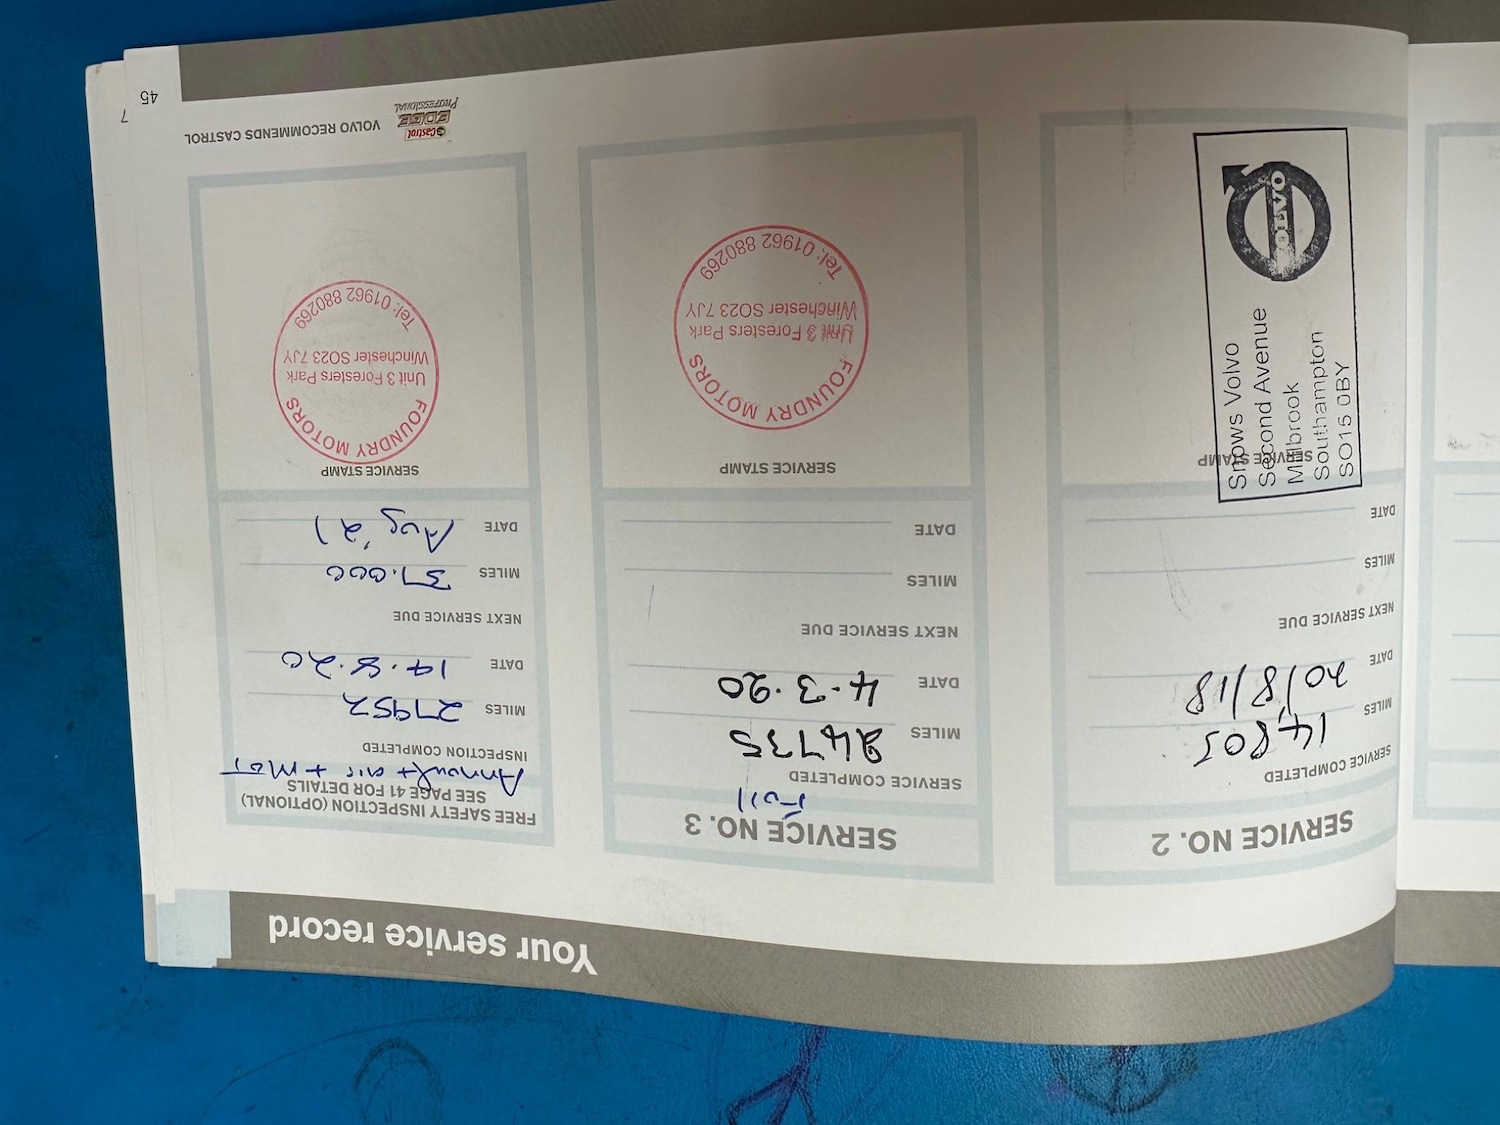 Your service record
SERVICE NO. 2
SERVICE COMPLETED
MILES 14,805
DATE 20/8/18
NEXT SERVICE DUE
MILES
DATE
SERVICE STAMP
VOLVO
Snows Volvo
Second Avenue
Millbrook
Southampton
SO15 0BY
SERVICE NO. 3
Full
SERVICE COMPLETED
MILES 24735
DATE 4.3.20
NEXT SERVICE DUE
MILES
DATE
SERVICE STAMP
FOUNDRY MOTORS
Unit 3 Foresters Park
Winchester SO23 7JY
Tel: 01962 880269
FREE SAFETY INSPECTION (OPTIONAL)
SEE PAGE 41 FOR DETAILS
Annual + air + MOT
INSPECTION COMPLETED
MILES 27952
DATE 14.8.20
NEXT SERVICE DUE
MILES 37.000
DATE Aug '21
SERVICE STAMP
FOUNDRY MOTORS
Unit 3 Foresters Park
Winchester SO23 7JY
Tel: 01962 880269
VOLVO RECOMMENDS CASTROL
Castrol
EDGE
PROFESSIONAL
45
7